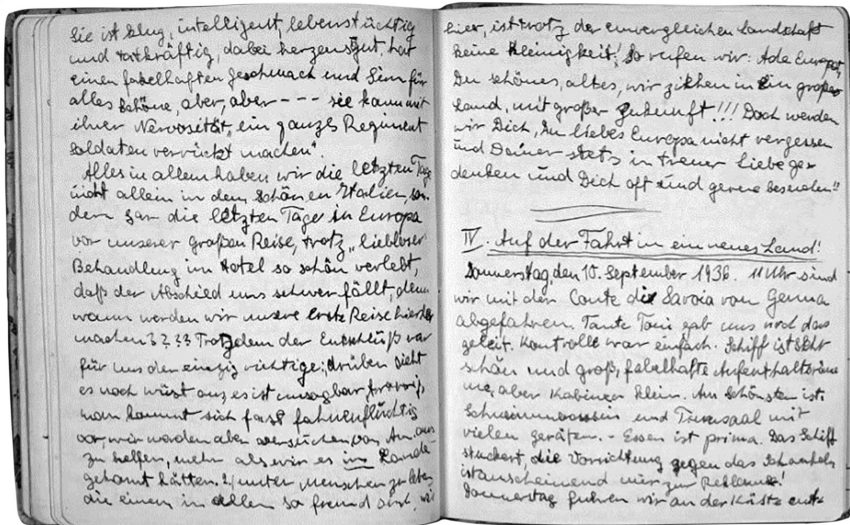 Sie ist klug, intelligent, lebenstüchtig
und tatkräftig, dabei herzensgut, hat
einen fabelhaften Geschmack und Sinn für
alles Schöne, aber, aber --- sie kann mit
ihrer Nervosität, ein ganzes Regiment
Soldaten verrückt machen".
Alles in allem haben wir die letzten Tage
nicht allein in dem schönen Italien, son-
dern gar die letzten Tage in Europa
vor unserer großen Reise, trotz "liebloser"
Behandlung im Hotel so schön verlebt,
daß der Abschied uns schwer fällt, denn
wann werden wir unsere erste Reise hierher
machen???? Trotzdem der Entschluß war
für uns der einzig richtige; drüben sieht
es noch wüst aus, es ist unsagbar traurig,
man kommt sich fast fahnenflüchtig
vor, wir werden aber versuchen von Am. aus
zu helfen, mehr als wir es im Lande
gekonnt hätten. Unter Menschen zu leben,
die einem in allem so fremd sind, wie
hier, ist trotz der unvergleichen Landschaft
keine Kleinigkeit! So rufen wir: Ade Europa,
Du schönes, altes, wir ziehen in ein großes
Land, mit großer Zukunft!!! Doch werden
wir Dich, Du liebes Europa nicht vergessen
und Deiner stets in treuer Liebe ge-
denken und Dich oft und gerne besuchen!!
IV. Auf der Fahrt in ein neues Land!
Donnerstag, den 10. September 1936. 11 Uhr sind
wir mit der Conte di Savoia von Genua
abgefahren. Tante Toni gab uns noch das
Geleit. Kontrolle war einfach. Schiff ist sehr
schön und groß, fabelhafte Aufenthaltsräu-
me, aber Kabinen klein. Am schönsten ist:
Schwimmbassin und Turnsaal mit
vielen Geräten. - Essen ist prima. Das Schiff
stuckert, die Vorrichtung gegen das Schaukeln
ist anscheinend nur zur Reklame!
Donnerstag fuhren wir an der Küste ent-